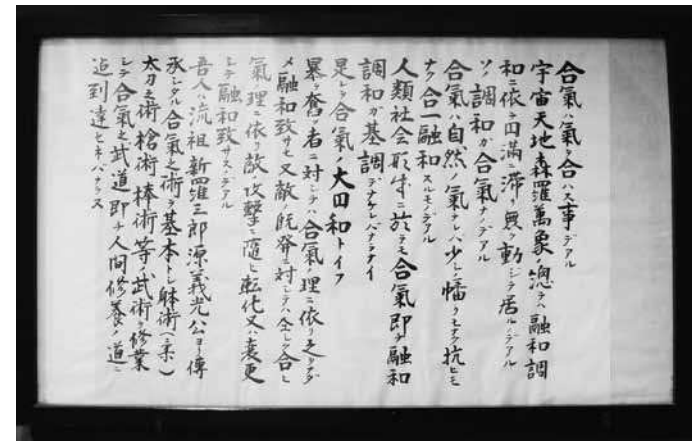 合氣ハ氣ヲ合ハス事デアル
宇宙天地森羅萬象ノ總テハ融和調
和ニ依リ円満ニ滞リ無ク動ジテ居ルノデアル
ソノ調和ガ合氣ナノデアル
合氣ハ自然ノ氣ナレバ少シノ蟠リモナク抗ヒモ
ナク合一融和スルモノデアル
人類社会形成ニ於テモ合氣即チ融和
調和ガ基調デナケレバナラナイ
是レヲ合氣ノ大円和トイフ
暴ヲ奮フ者ニ対シテハ合氣ノ理ニ依リ之ヲ
メ融和致サセ又敵既発ニ対シテハ全シク合ヒ
氣ノ理ニ依リ敵ノ攻撃ニ隨ヒ転化又ハ変更
シテ融和致サスノデアル
吾人ハ流祖新羅三郎源義光公ヨリ傳
承シタル合氣之術ヲ基本トシ躰術(柔)
太刀之術槍術棒術等ノ武術ヲ修業
シテ合氣之武ノ道即チ人間修養ノ道ニ
迄到達セネバナラヌ